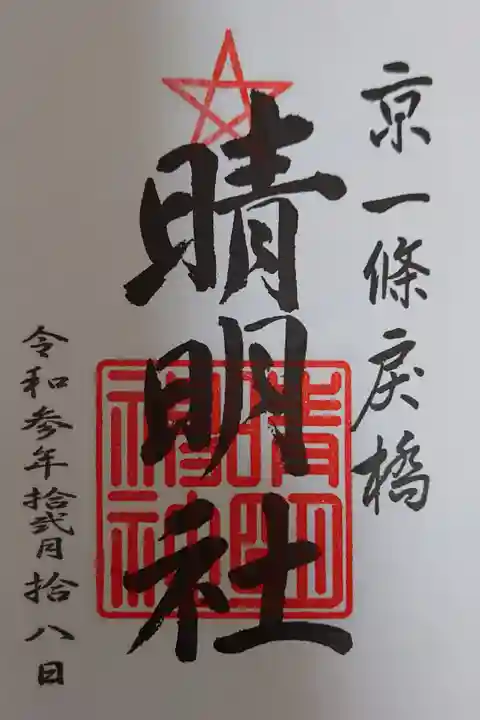 京一條戻橋
晴明社
晴明神社
令和参年拾弐月拾八日